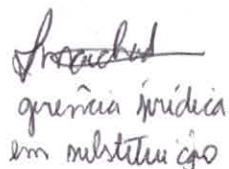 gerência jurídica
em substituição